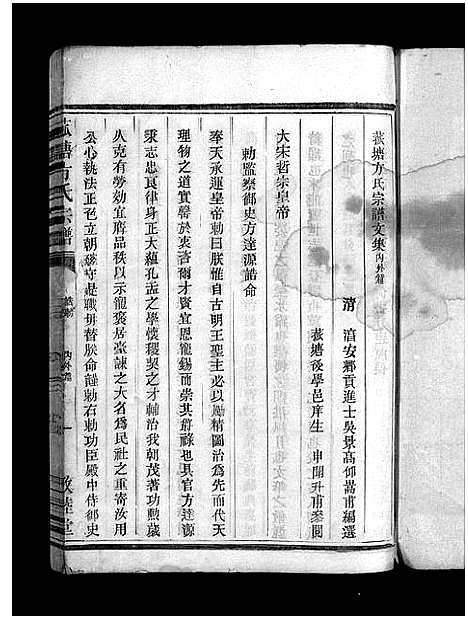 菰塘方氏宗譜文集內外篇
清 湻安鄉貢進士吳景高仰嵩甫編選
菰塘後學邑庠生 申開升甫參閱
大宋哲宗皇帝
勅監察御史方達源誥命
奉天承運皇帝勅曰朕惟自古明王聖主必以勵精圖治爲先而代天
理物之道實馨於衷吝爾才賢宜恩寵錫而崇其爵祿也具官方達源
秉志忠良律身正大蘊孔孟之學懷稷契之才輔治我朝茂著功勲歲
久克有勞効宜膺品秩以示寵褒居臺諫之大名爲民社之重寄汝用
公心執法正色立朝 守是職毋替朕命 勅右勅功臣殿中侍御史
菰塘方氏宗譜
內外篇
一
敦睦堂